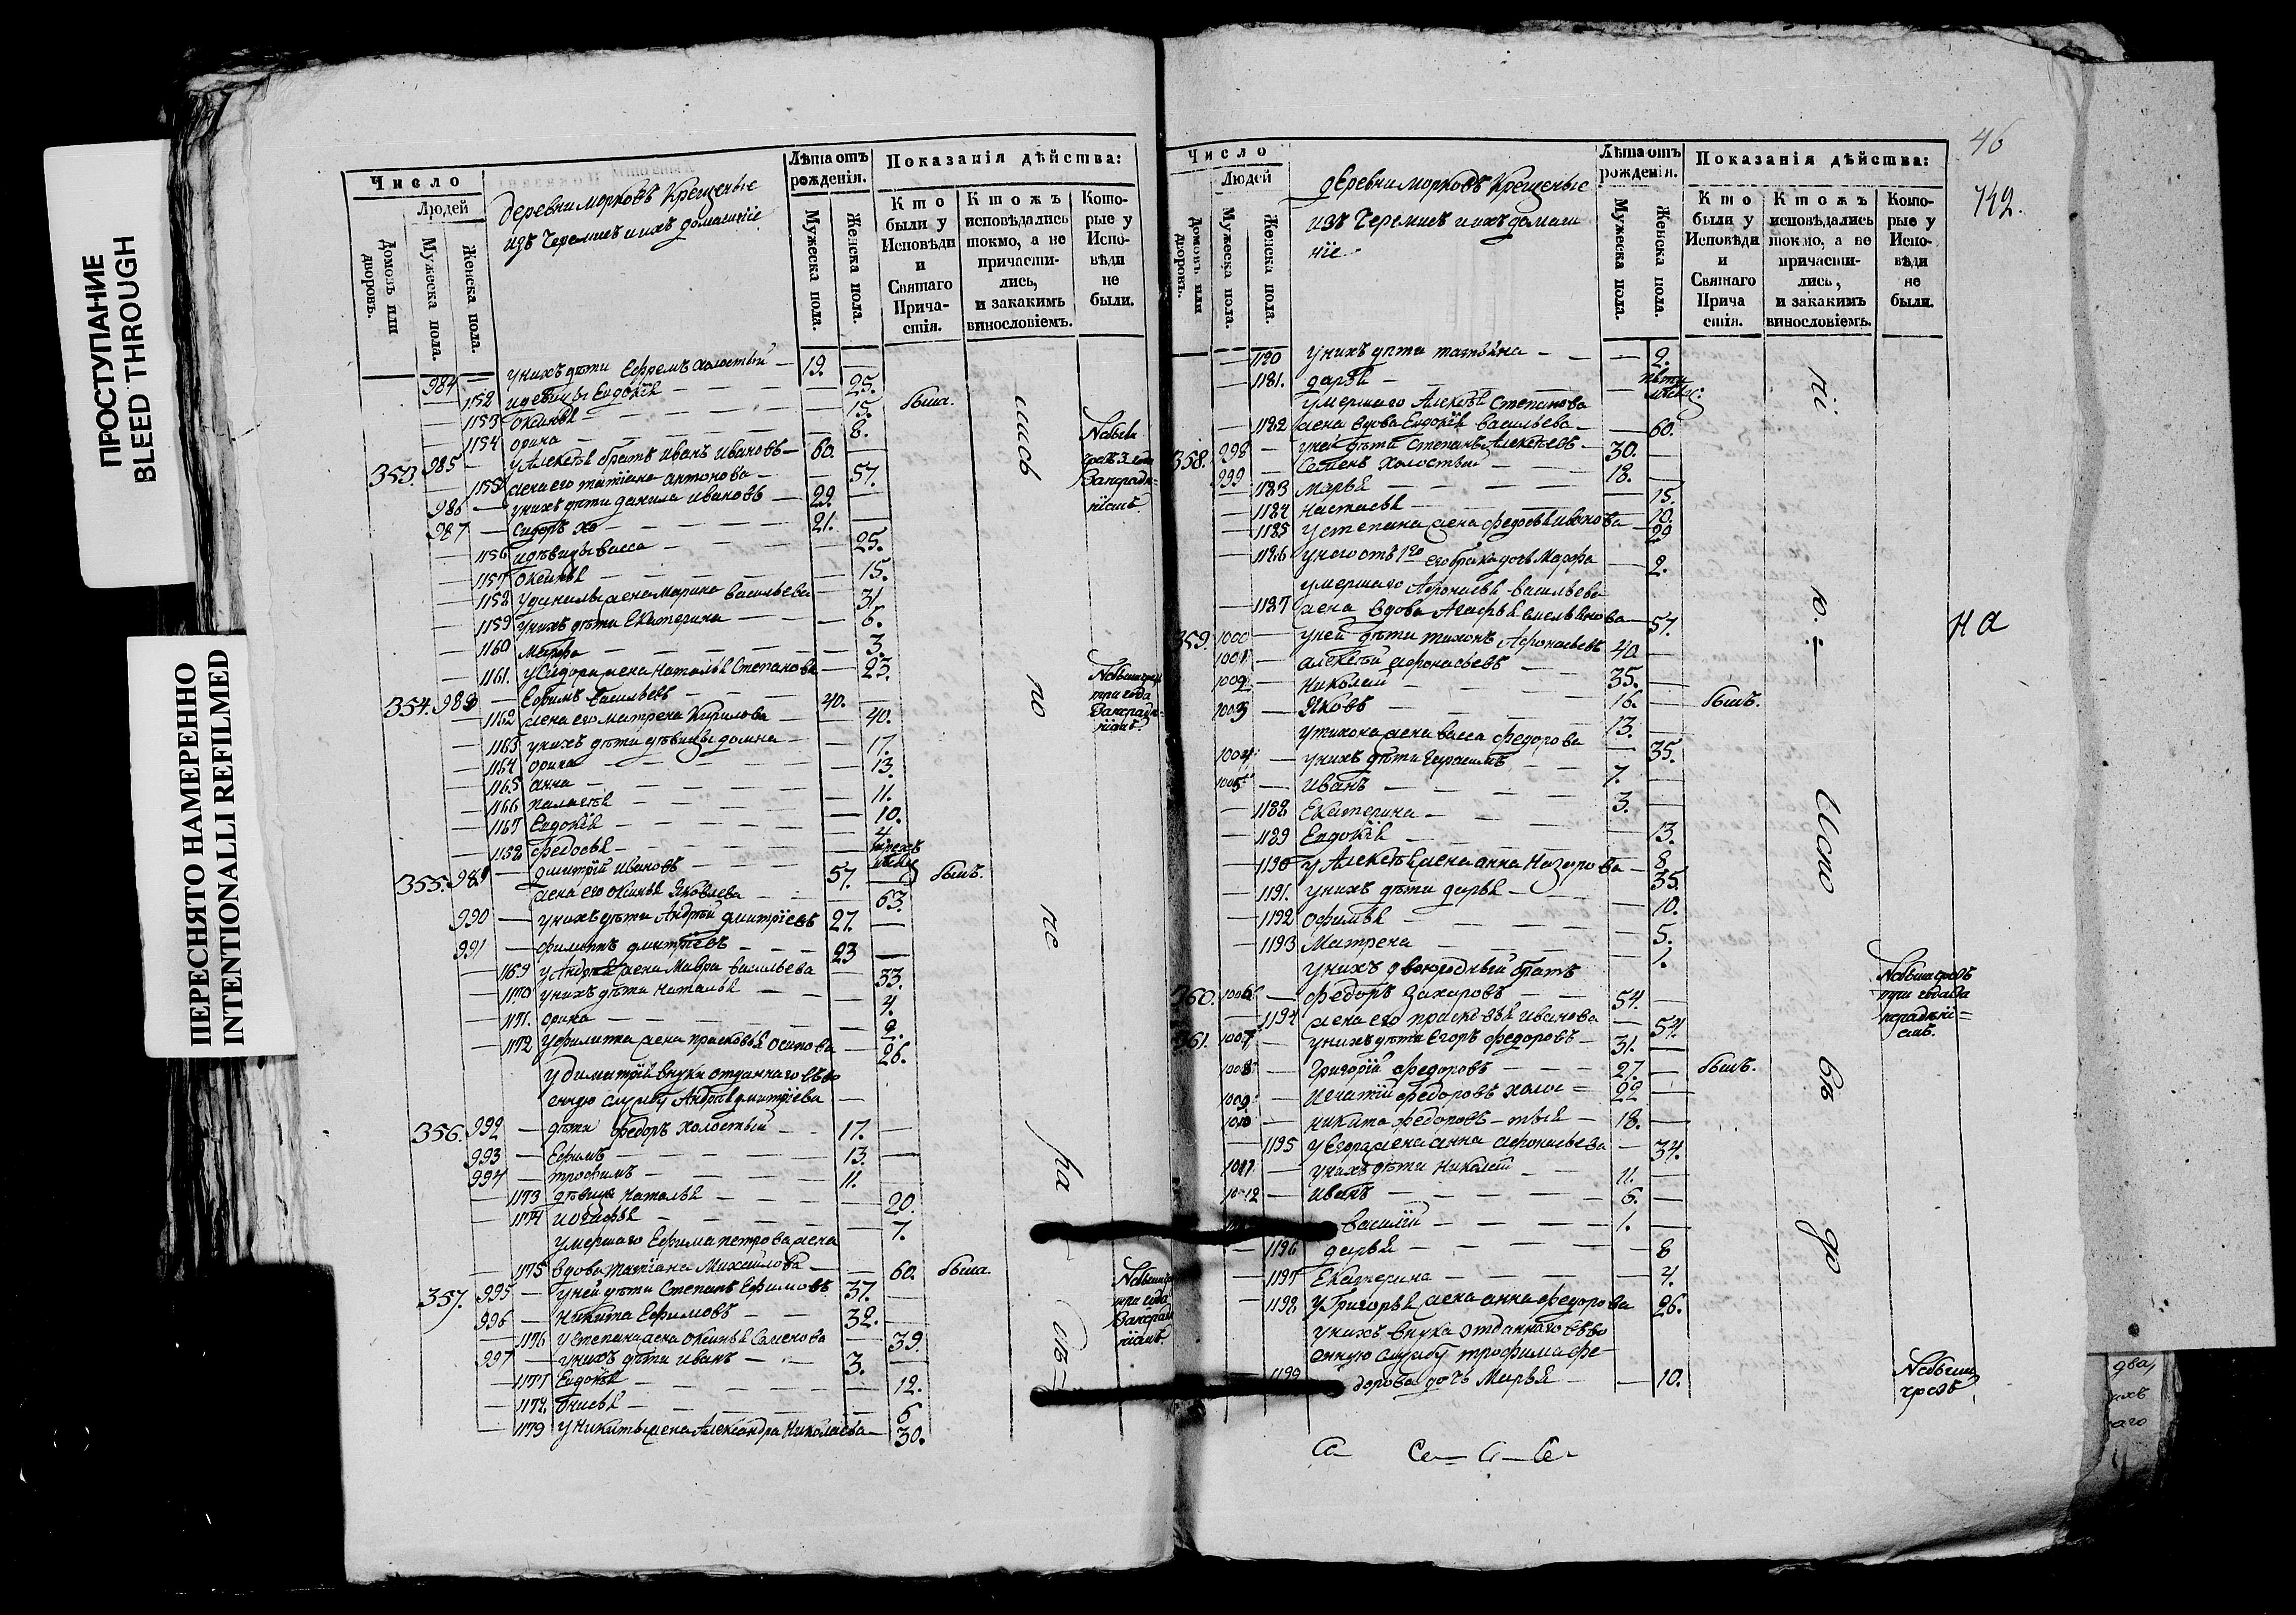 ПРОСТУПАНИЕ
BLEED THROUGH
ПЕРЕСНЯТО НАМЕРЕННО
INTENTIONALLI REFILMED
Число
Людей
Домовъ или дворовъ.
Мужеска пола.
Женска пола.
деревни морковъ Крещеные
изъ Черемисъ и ихъ домашнiе
Лѣта отъ рожденія.
Мужеска пола.
Женска пола.
Показанія дѣйства:
Кто были у Исповѣди и Святаго Прича-стія.
Ктожъ исповѣдались токмо, а не причасти-лись, и закакимъ винословіемъ.
Кото-рые у Испо-вѣди не были.
984 — у нихъ дѣти Ефремъ холостый — 19. —
— 1152 и девицы Евдокѣя — 25. была.
— 1153 Оксинья — 15.
— 1154 орина — 8.
353. 985 — у Алексѣя братъ Иванъ Ивановъ — 60. —
— 1155 жена его татiана антонова — 57.
986 — у нихъ дѣти данила Ивановъ — 29. —
987 — Сидоръ хо — 21. —
— 1156 и дѣвицы васса — 25.
— 1157 Оксинья — 15.
— 1158 у данилы жена Марина васильева — 31
— 1159 у нихъ дѣти Екатерина — 6.
— 1160 марфа — 3.
— 1161. у Сидора жена Наталья Степанова — 23.
354. 988 — Ефимъ васильевъ — 40. —
— 1162 жена его матрена Кирилова — 40.
— 1163 у нихъ дѣти дѣвицы домна — 17.
— 1164 орина — 13.
— 1165 анна — 11.
— 1166 паласея — 10.
— 1167 Евдокея — 4
— 1168 федосья —
355. 989 — дмитрiй Ивановъ — 57. — былъ.
жена его Оксинья Яковлева — 63.
990 — у нихъ дѣти Андрѣй дмитрiевъ 27. —
991 — филиппъ дмитрiевъ — 23 —
— 1169 у Андрея жена Мавра васильева — 33.
— 1170 у нихъ дѣти Наталья — 4.
— 1171. орина — 2.
— 1172 у филипа жена прасковья Осипова — 26.
у димитрiя внуки отданнаго въ во
енную службу Андрея дмитрiева —
356. 992 — дѣти федоръ холостый — 17. —
993 — Ефимъ — 13. —
994 — трофимъ — 11.
— 1173 дѣвица Наталья — 20.
— 1174 и огафья — 7.
умершаго Ефима петрова жена
— 1175 вдова татiана Михаилова — 60. была.
357. 995 — у ней дѣти Степанъ Ефимовъ 37. —
996 — Никита Ефимовъ — 32. —
— 1176 у Степана жена Оксинья Семенова — 39.
997 — у нихъ дѣти Иванъ — 3. —
— 1177 Евдокея — 12.
— 1178. — 6
— 1179 у Никиты жена Александра Николаева — 30.
46
142.
Число
Людей
Домовъ или дворовъ.
Мужеска пола.
Женска пола.
деревни морковъ Крещеные
изъ Черемисъ и ихъ домаш
нiе
Лѣта отъ рожденія.
Мужеска пола.
Женска пола.
Показанія дѣйства:
Кто были у Исповѣди и Святаго Прича стія.
Ктожъ исповѣдались токмо, а не причасти-лись, и закакимъ винословіемъ.
Кото-рые у Испо-вѣди не были.
— 1180 у нихъ дѣти татьяна — 2.
— 1181. дарья —
умершаго Алексѣя Степанова
— 1182 жена вдова Евдокiя васильева — 60.
358. 998 — у ней дѣти Степанъ Алексѣевъ — 30. —
999 — Семенъ холостый — 18. —
— 1183 Марья — 15.
— 1184 Настасья — 10.
— 1185 у степана жена федосья Иванова — 29
— 1186 у него отъ 1го его брака дочь Марфа — 2.
умершаго Афонасья васильева
— 1187 жена вдова Агафья емельянова — 57.
359. 1000 — у ней дѣти тихонъ Афонасьевъ 40 —
1001 — алексѣй афонасьевъ — 35. —
1002 — Николай — 16. — былъ.
1003 — Яковъ — 13. —
у тихона жена васса федорова — 35.
1004 — у нихъ дѣти Герасимъ — 7. —
1005 — Иванъ — 3. —
— 1188 Екатерина — 13.
— 1189 Евдокiя — 8
— 1190 у Алексѣя жена анна Назарова — 35.
— 1191. у нихъ дѣти дарья — 10.
— 1192 Офимья — 5.
— 1193 Матрена — 1.
у нихъ двоюродный братъ
360. 1006 — федоръ Захаровъ — 54. —
— 1194 жена его прасковья Иванова — 54.
361. 1007 — у нихъ дѣти Егоръ федоровъ — 31. —
1008 — Григорiй федоровъ — 27. — былъ.
1009 — Игнатiй федоровъ холос = 22 —
1010 — никита федоровъ — тыя — 18. —
— 1195 у Егора жена анна афонасьева — 34.
1011 — у нихъ дѣти Николай — 11. —
1012 — Иванъ — 6. —
василiй — 1. —
— 1196 дарья — 8
— 1197 Екатерина — 4.
— 1198. у Григорья жена анна федорова 26.
у нихъ внука отданнаго въ во
енную службу трофима фе
1199 дорова дочь Марья — 10.
на